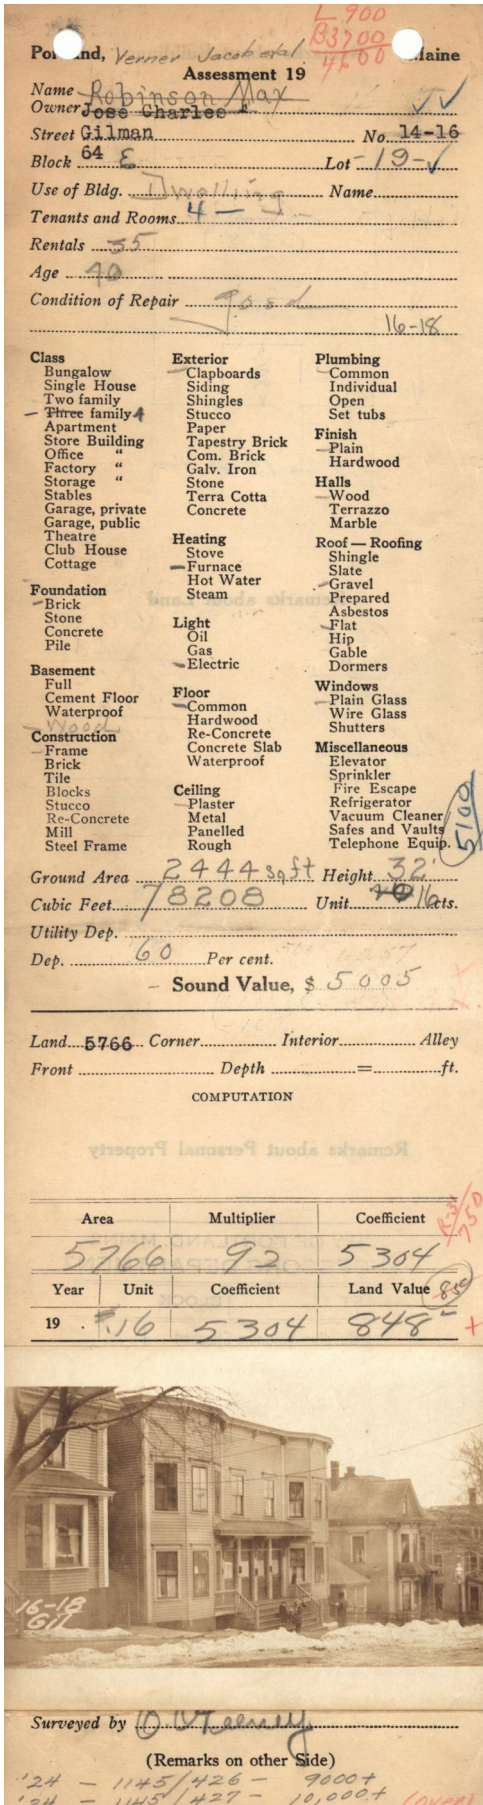 L 900
B3700
4600
Portland, Verner Jacob etal Maine
Assessment 19
Name Robinson Max
Owner Jose Charles F
Street Gilman No. 14-16
Block 64 E Lot -19-
Use of Bldg. Dwelling Name
Tenants and Rooms 4 —
Rentals 35
Age 40
Condition of Repair good
16-18
Class
Bungalow
Single House
Two family
Three family 4
Apartment
Store Building
Office "
Factory "
Storage "
Stables
Garage, private
Garage, public
Theatre
Club House
Cottage
Foundation
Brick
Stone
Concrete
Pile
Basement
Full
Cement Floor
Waterproof
Wood
Construction
Frame
Brick
Tile
Blocks
Stucco
Re-Concrete
Mill
Steel Frame
Exterior
Clapboards
Siding
Shingles
Stucco
Paper
Tapestry Brick
Com. Brick
Galv. Iron
Stone
Terra Cotta
Concrete
Heating
Stove
Furnace
Hot Water
Steam
Light
Oil
Gas
Electric
Floor
Common
Hardwood
Re-Concrete
Concrete Slab
Waterproof
Ceiling
Plaster
Metal
Panelled
Rough
Plumbing
Common
Individual
Open
Set tubs
Finish
Plain
Hardwood
Halls
Wood
Terrazzo
Marble
Roof — Roofing
Shingle
Slate
Gravel
Prepared
Asbestos
Flat
Hip
Gable
Dormers
Windows
Plain Glass
Wire Glass
Shutters
Miscellaneous
Elevator
Sprinkler
Fire Escape
Refrigerator
Vacuum Cleaner
Safes and Vaults
Telephone Equip.
5100
Ground Area 2444 sq ft Height 32'
Cubic Feet 78208 Unit 16 cts.
Utility Dep.
Dep. 60 Per cent.
Sound Value, $ 5005
Land 5766 Corner Interior Alley
Front Depth = ft.
COMPUTATION
Remarks about Personal Property
Area Multiplier Coefficient
5766 92 5304
Year Unit Coefficient Land Value
19 .16 5304 848
16-18
Gil
Surveyed by
(Remarks on other Side)
'24 - 1145/426 - 9000+
'24 - 1145/427 - 10,000+ (over)